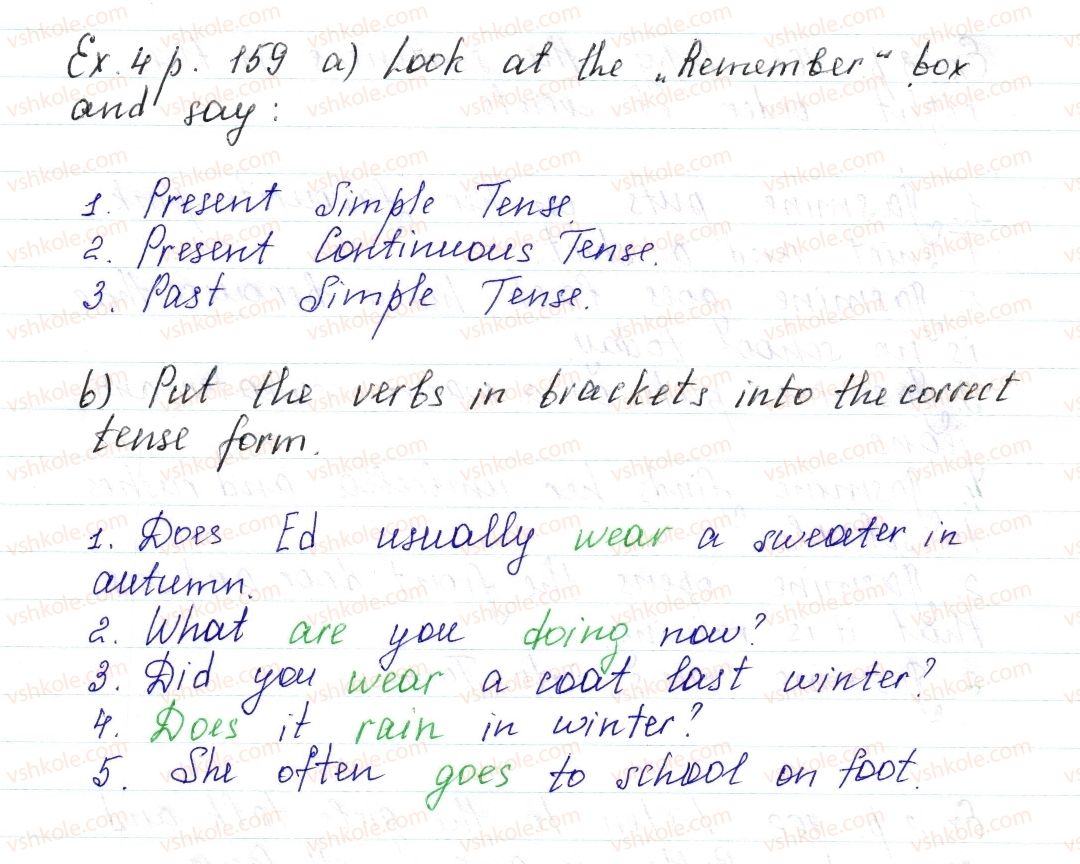 Ex. 4 p. 159 a) Look at the „Remember“ box
and say:
1. Present Simple Tense.
2. Present Continuous Tense.
3. Past Simple Tense.
b) Put the verbs in brackets into the correct
tense form.
1. Does Ed usually wear a sweater in
autumn.
2. What are you doing now?
3. Did you wear a coat last winter?
4. Does it rain in winter?
5. She often goes to school on foot.